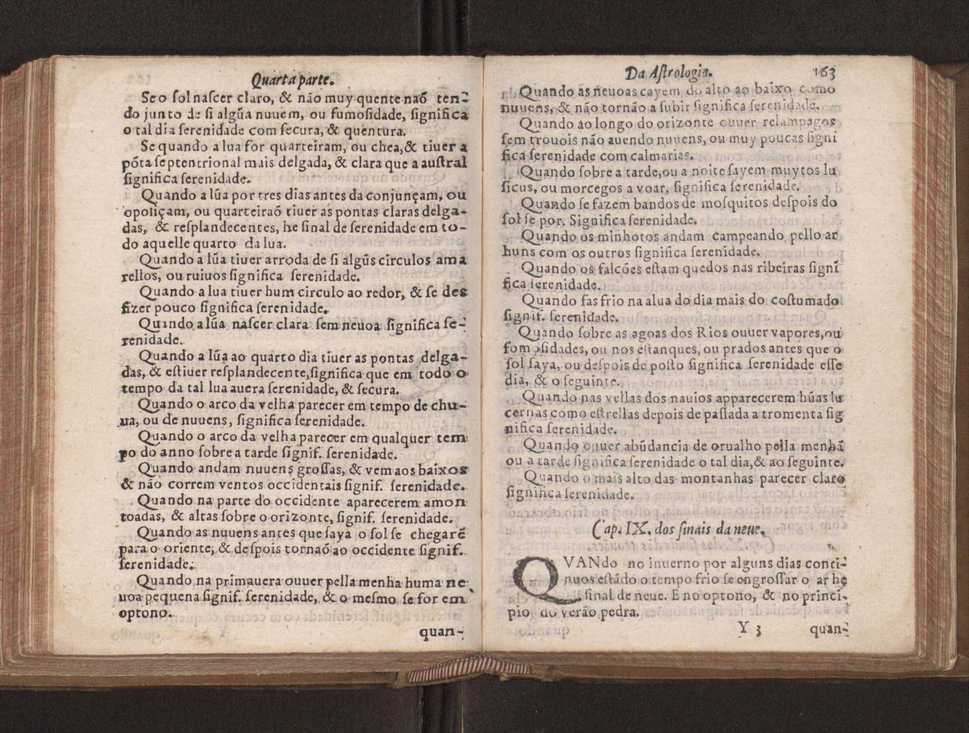 Quarta parte.
Se o ſol naſcer claro, & não muy quente naõ ten-
do junto de ſi algũa nuuem, ou fumoſidade, ſignifica
o tal dia ſerenidade com ſecura, & quentura.
Se quando a lua for quarteiram, ou chea, & tiuer a
põta ſeptentrional mais delgada, & clara que a auſtral
ſignifica ſerenidade.
Quando a lũa por tres dias antes da conjunçam, ou
opoſiçam, ou quarteiraõ tiuer as pontas claras delga-
das, & reſplandecentes, he ſinal de ſerenidade em to-
do aquelle quarto da lua.
Quando a lũa tiuer arroda de ſi algũs circulos ama
rellos, ou ruiuos ſignifica ſerenidade.
Quando a lua tiuer hum circulo ao redor, & ſe des
fizer pouco ſignifica ſerenidade.
Quando a lũa naſcer clara ſem neuoa ſignifica ſe-
renidade.
Quando a lũa ao quarto dia tiuer as pontas delga-
das, & eſtiuer reſplandecente, ſignifica que em todo o
tempo da tal lua auera ſerenidade, & ſecura.
Quando o arco da velha parecer em tempo de chu-
ua, ou de nuuens, ſignifica ſerenidade.
Quando o arco da velha parecer em qualquer tem
po do anno ſobre a tarde ſignif. ſerenidade.
Quando andam nuuens groſſas, & vem aos baixos
& não correm ventos occidentais ſignif. ſerenidade.
Quando na parte do occidente aparecerem amon
toadas, & altas ſobre o orizonte, ſignif. ſerenidade.
Quando as nuuens antes que ſaya o ſol ſe chegarẽ
para o oriente, & deſpois tornaõ ao occidente ſignif.
ſerenidade.
Quando na primauera ouuer pella menha huma ne
uoa pequena ſignif. ſerenidade, & o meſmo ſe for em
optono.
quan-
Da Aſtrologia. 163
Quando as neuoas cayem do alto ao baixo como
nuuens, & não tornão a ſubir ſignifica ſerenidade.
Quando ao longo do orizonte ouuer relampagos
ſem trouois não auendo nuuens, ou muy poucas ſigni
fica ſerenidade com calmarias.
Quando ſobre a tarde, ou a noite ſayem muytos lu
ſicus, ou morcegos a voar, ſignifica ſerenidade.
Quando ſe fazem bandos de moſquitos deſpois do
ſol ſe por, Significa ſerenidade.
Quando os minhotos andam campeando pello ar
huns com os outros ſignifica ſerenidade.
Quando os falcões eſtam quedos nas ribeiras ſigni
fica ſerenidade.
Quando fas frio na alua do dia mais do coſtumado
ſignif. ſerenidade.
Quando ſobre as agoas dos Rios ouuer vapores, ou
fomoſidades, ou nos eſtanques, ou prados antes que o
ſol ſaya, ou deſpois de poſto ſignifica ſerenidade eſſe
dia, & o ſeguinte.
Quando nas vellas dos nauios apparecerem hũas lu
cernas como eſtrellas depois de paſſada a tromenta ſig
nifica ſerenidade.
Quando ouuer abũdancia de orualho pella menhã
ou a tarde ſignifica ſerenidade o tal dia, & ao ſeguinte.
Quando o mais alto das montanhas parecer claro
ſignifica ſerenidade.
Cap. IX. dos ſinais da neue.
QVANdo no inuerno por alguns dias conti-
nuos eſtãdo o tempo frio ſe engroſſar o ar he
ſinal de neue. E no optono, & no princi-
pio do verão pedra.
Y 3 quan-